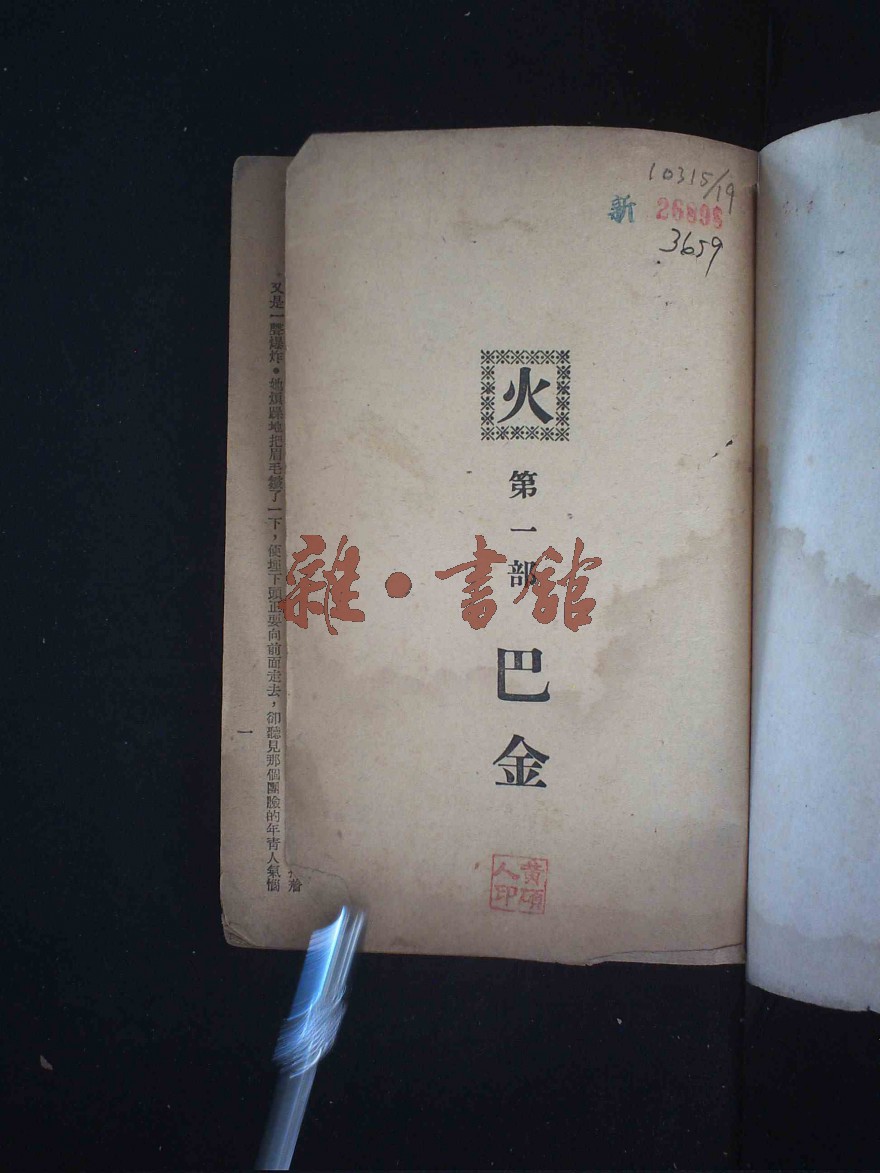 10315/19
新 26896
3659
火
第一部
巴金
黄頌人印
雜·書館
又是一聲爆炸。她煩躁地把眉毛皺了一下，便埋下頭正要向前面走去，卻聽見那個團臉的年青人氣惱
一